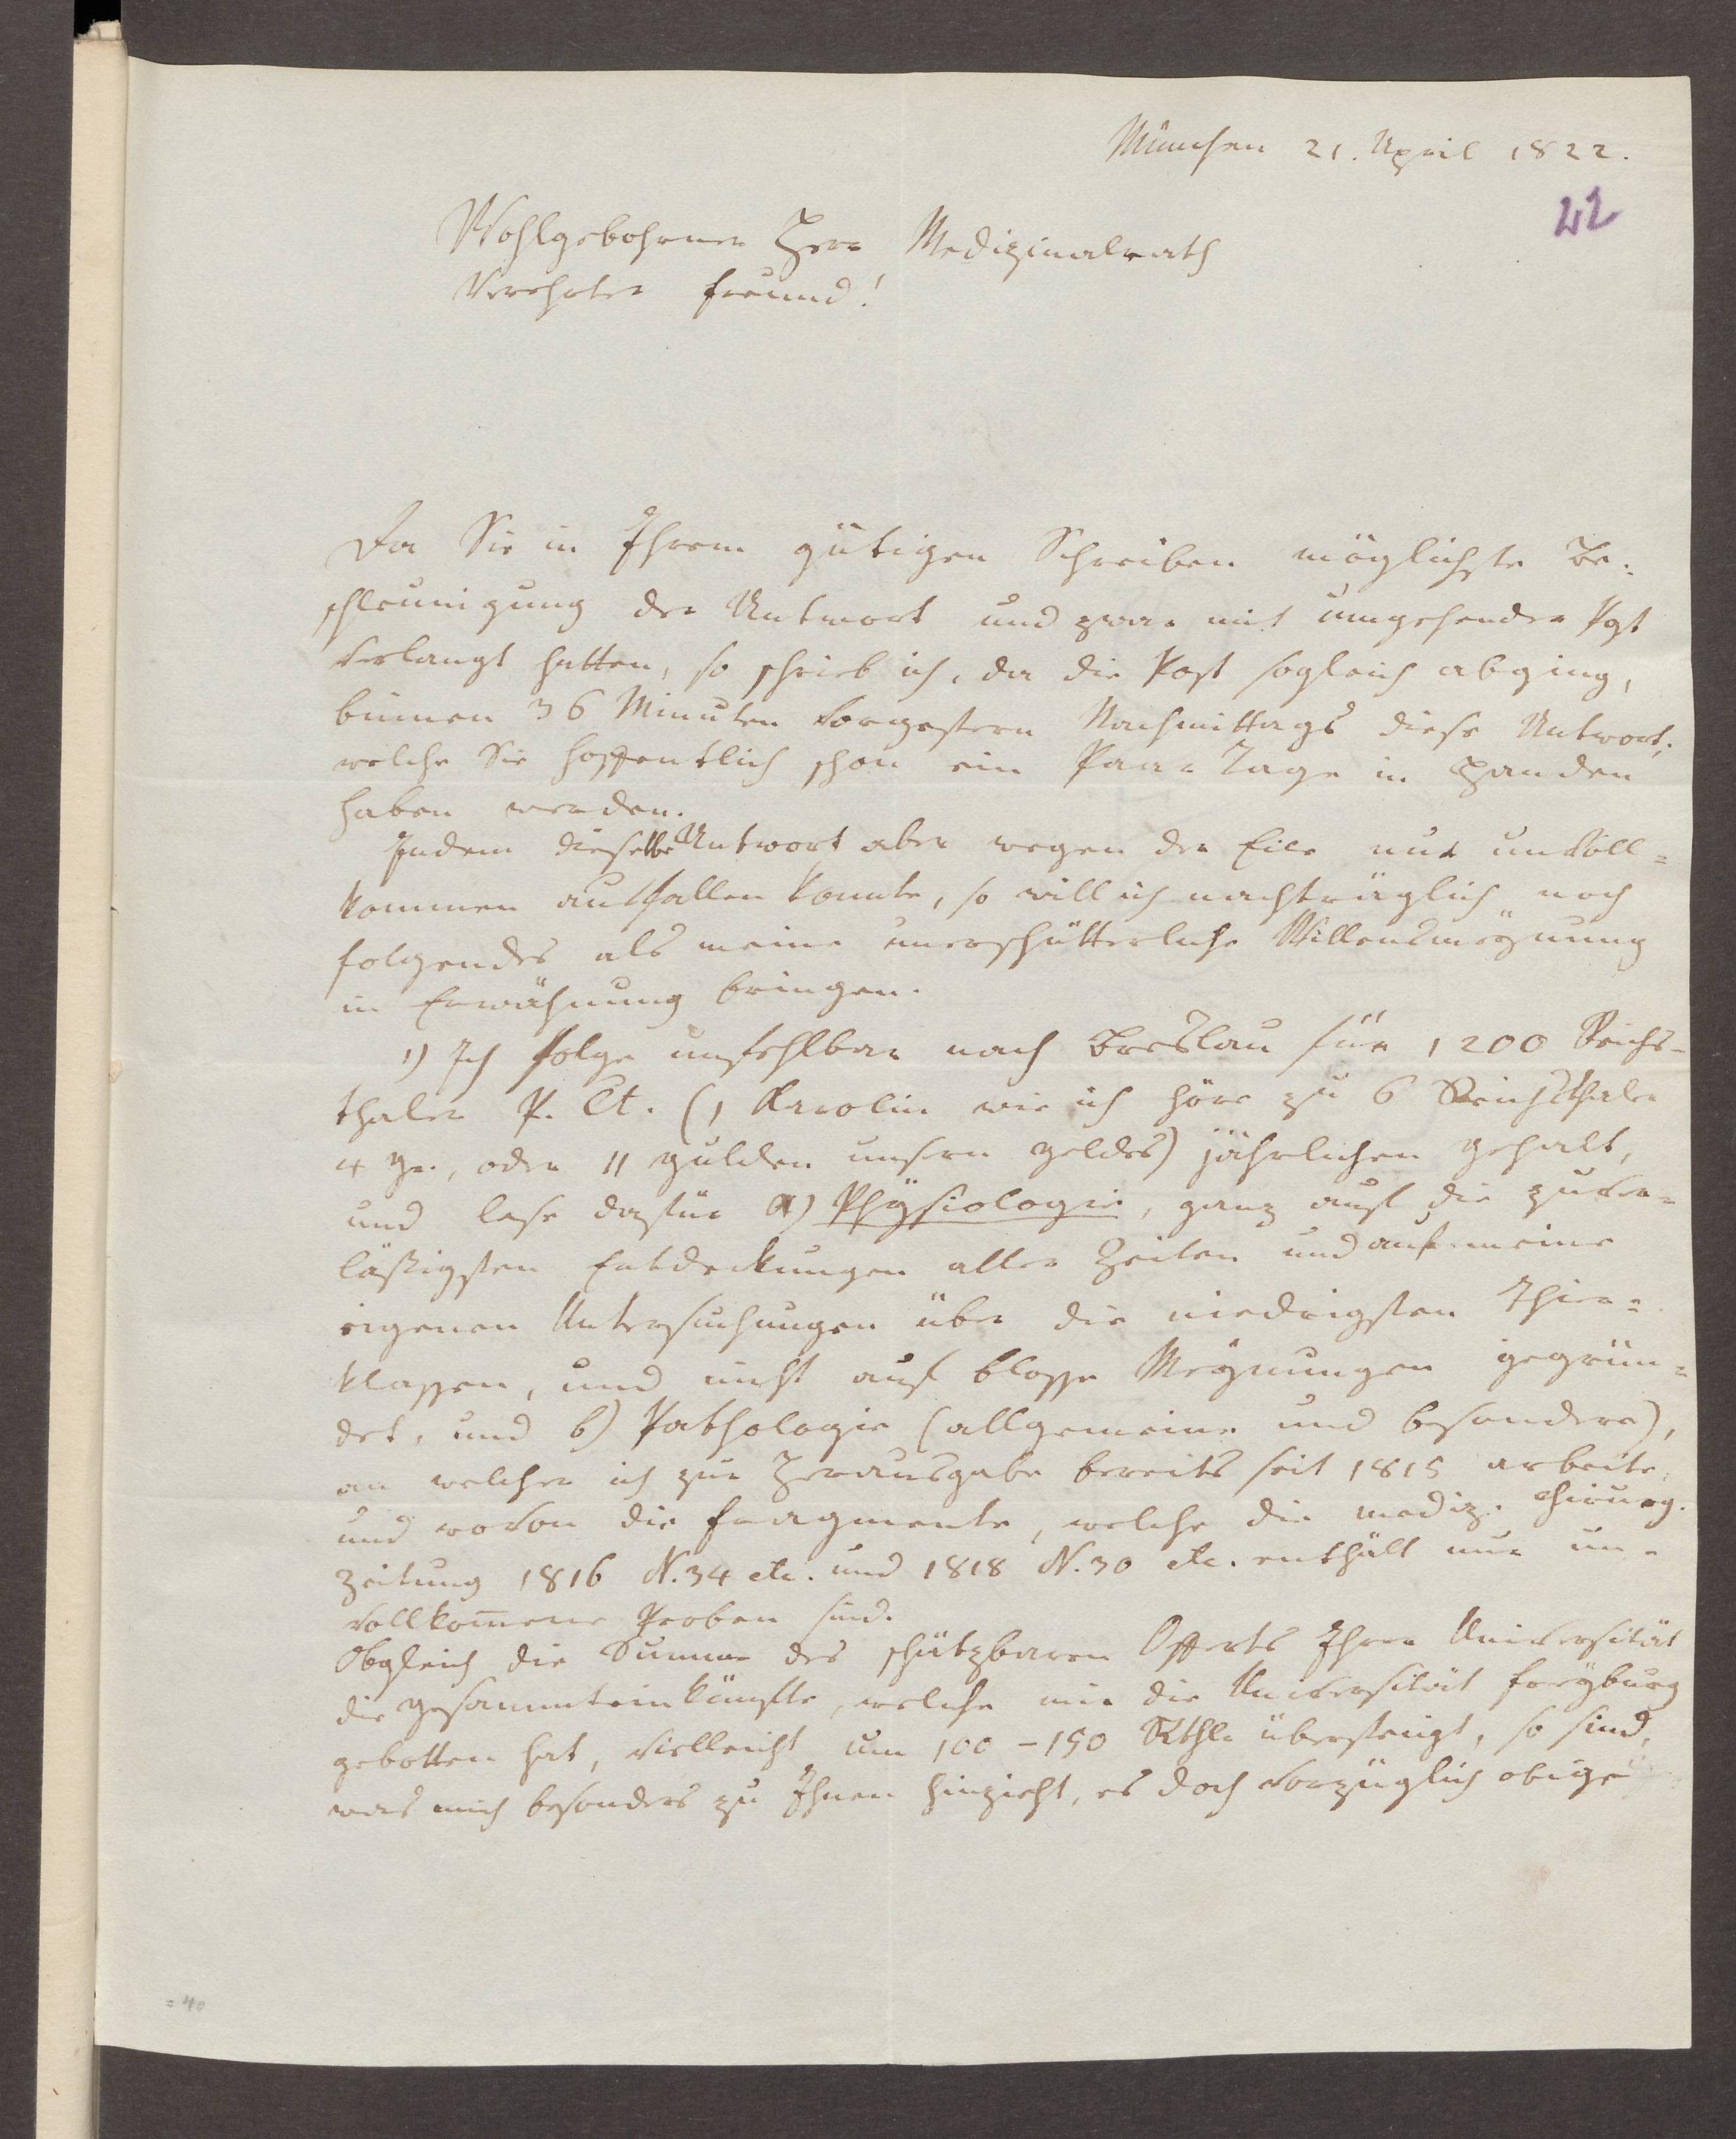 München 21. April 1822.
42
Wohlgebohrner Herr Medizinalrath
Verehrter Freund!
Da Sie in Ihrem gütigen Schreiben möglichste Be-
schleunigung der Antwort und zwar mit umgehender Post
verlangt hatten, so schrieb ich, da die Post sogleich abging,
binnen 36 Minuten vorgestern Nachmittags diese Antwort,
welche Sie hoffentlich schon ein Paar Tage in Handen
haben werden.
Indem dieselbe Antwort aber wegen der Eile nur unvoll=
kommen ausfallen konnte, so will ich nachträglich noch
folgendes als meine unerschütterliche Willensmeÿnung
in Erwähnung bringen.
1) Ich folge unfehlbar nach Breslau für 1200 Reichs-
thaler P. Ct. (1 Karolin wie ich höre zu 6 Reichsthaler
4 gr., oder 11 Gulden unsern Geldes) jährlichen Gehalt,
und lese dafür a) Phÿsiologie, ganz auf die zuver=
läßigsten Entdeckungen aller Zeiten und auf meine
eigenen Untersuchungen über die niedrigsten Thier=
klassen, und nicht auf blosse Meÿnungen gegrün=
det, und b) Pathologie (allgemeine und besondere),
an welcher ich zur Herausgabe bereits seit 1815 arbeite,
und wovon die Fragmente, welche die mediz. chirurg.
Zeitung 1816 N. 34 etc. und 1818 N. 30 etc. enthält nur un-
vollkom̅ene Proben sind.
Obgleich die Summe des schätzbaren Offerts Ihrer Universität
die Gesammteinkünfte, welche mir die Universität Freÿburg
gebotten hat, vielleicht um 100 - 150 Rthlr übersteigt, so sind,
was mich besonders zu Ihnen hinzieht, es doch vorzüglich obige
= 40